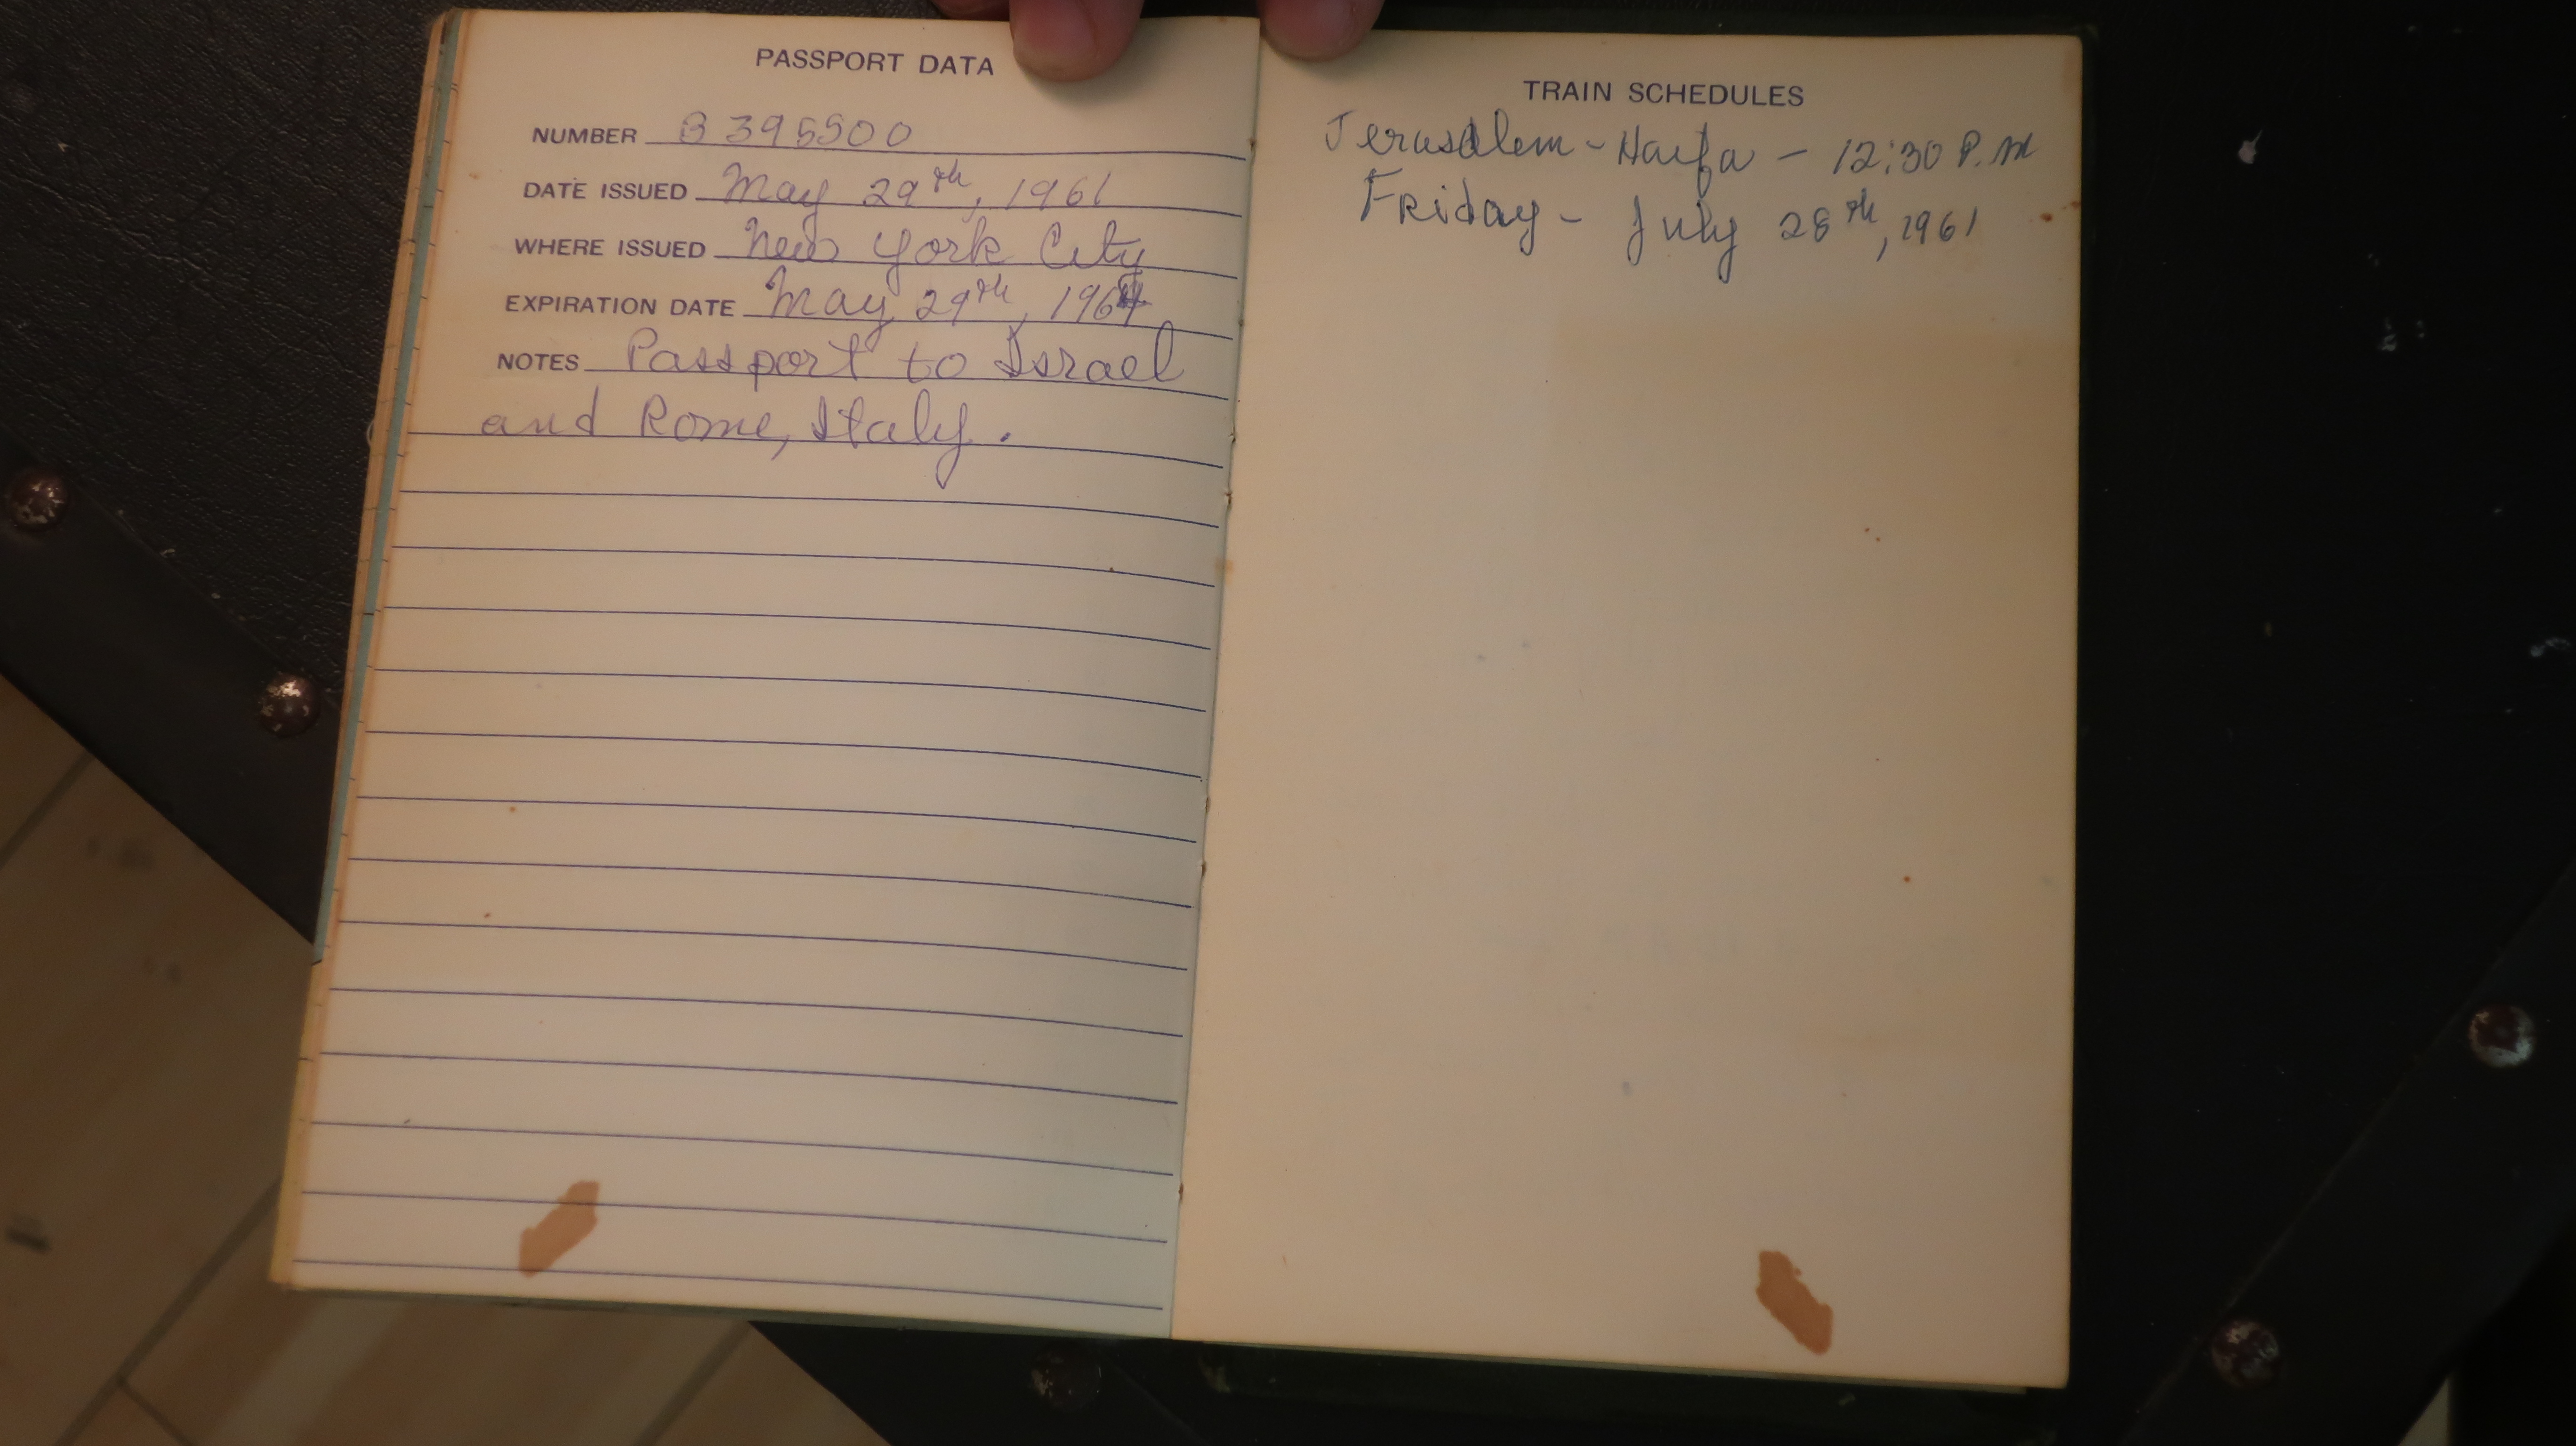 PASSPORT DATA
NUMBER B 395500
DATE ISSUED May 29th, 1961
WHERE ISSUED New York City
EXPIRATION DATE May 29th, 1964
NOTES Passport to Israel
and Rome, Italy.
TRAIN SCHEDULES
Jerusalem - Haifa - 12:30 P.M
Friday - July 28th, 1961